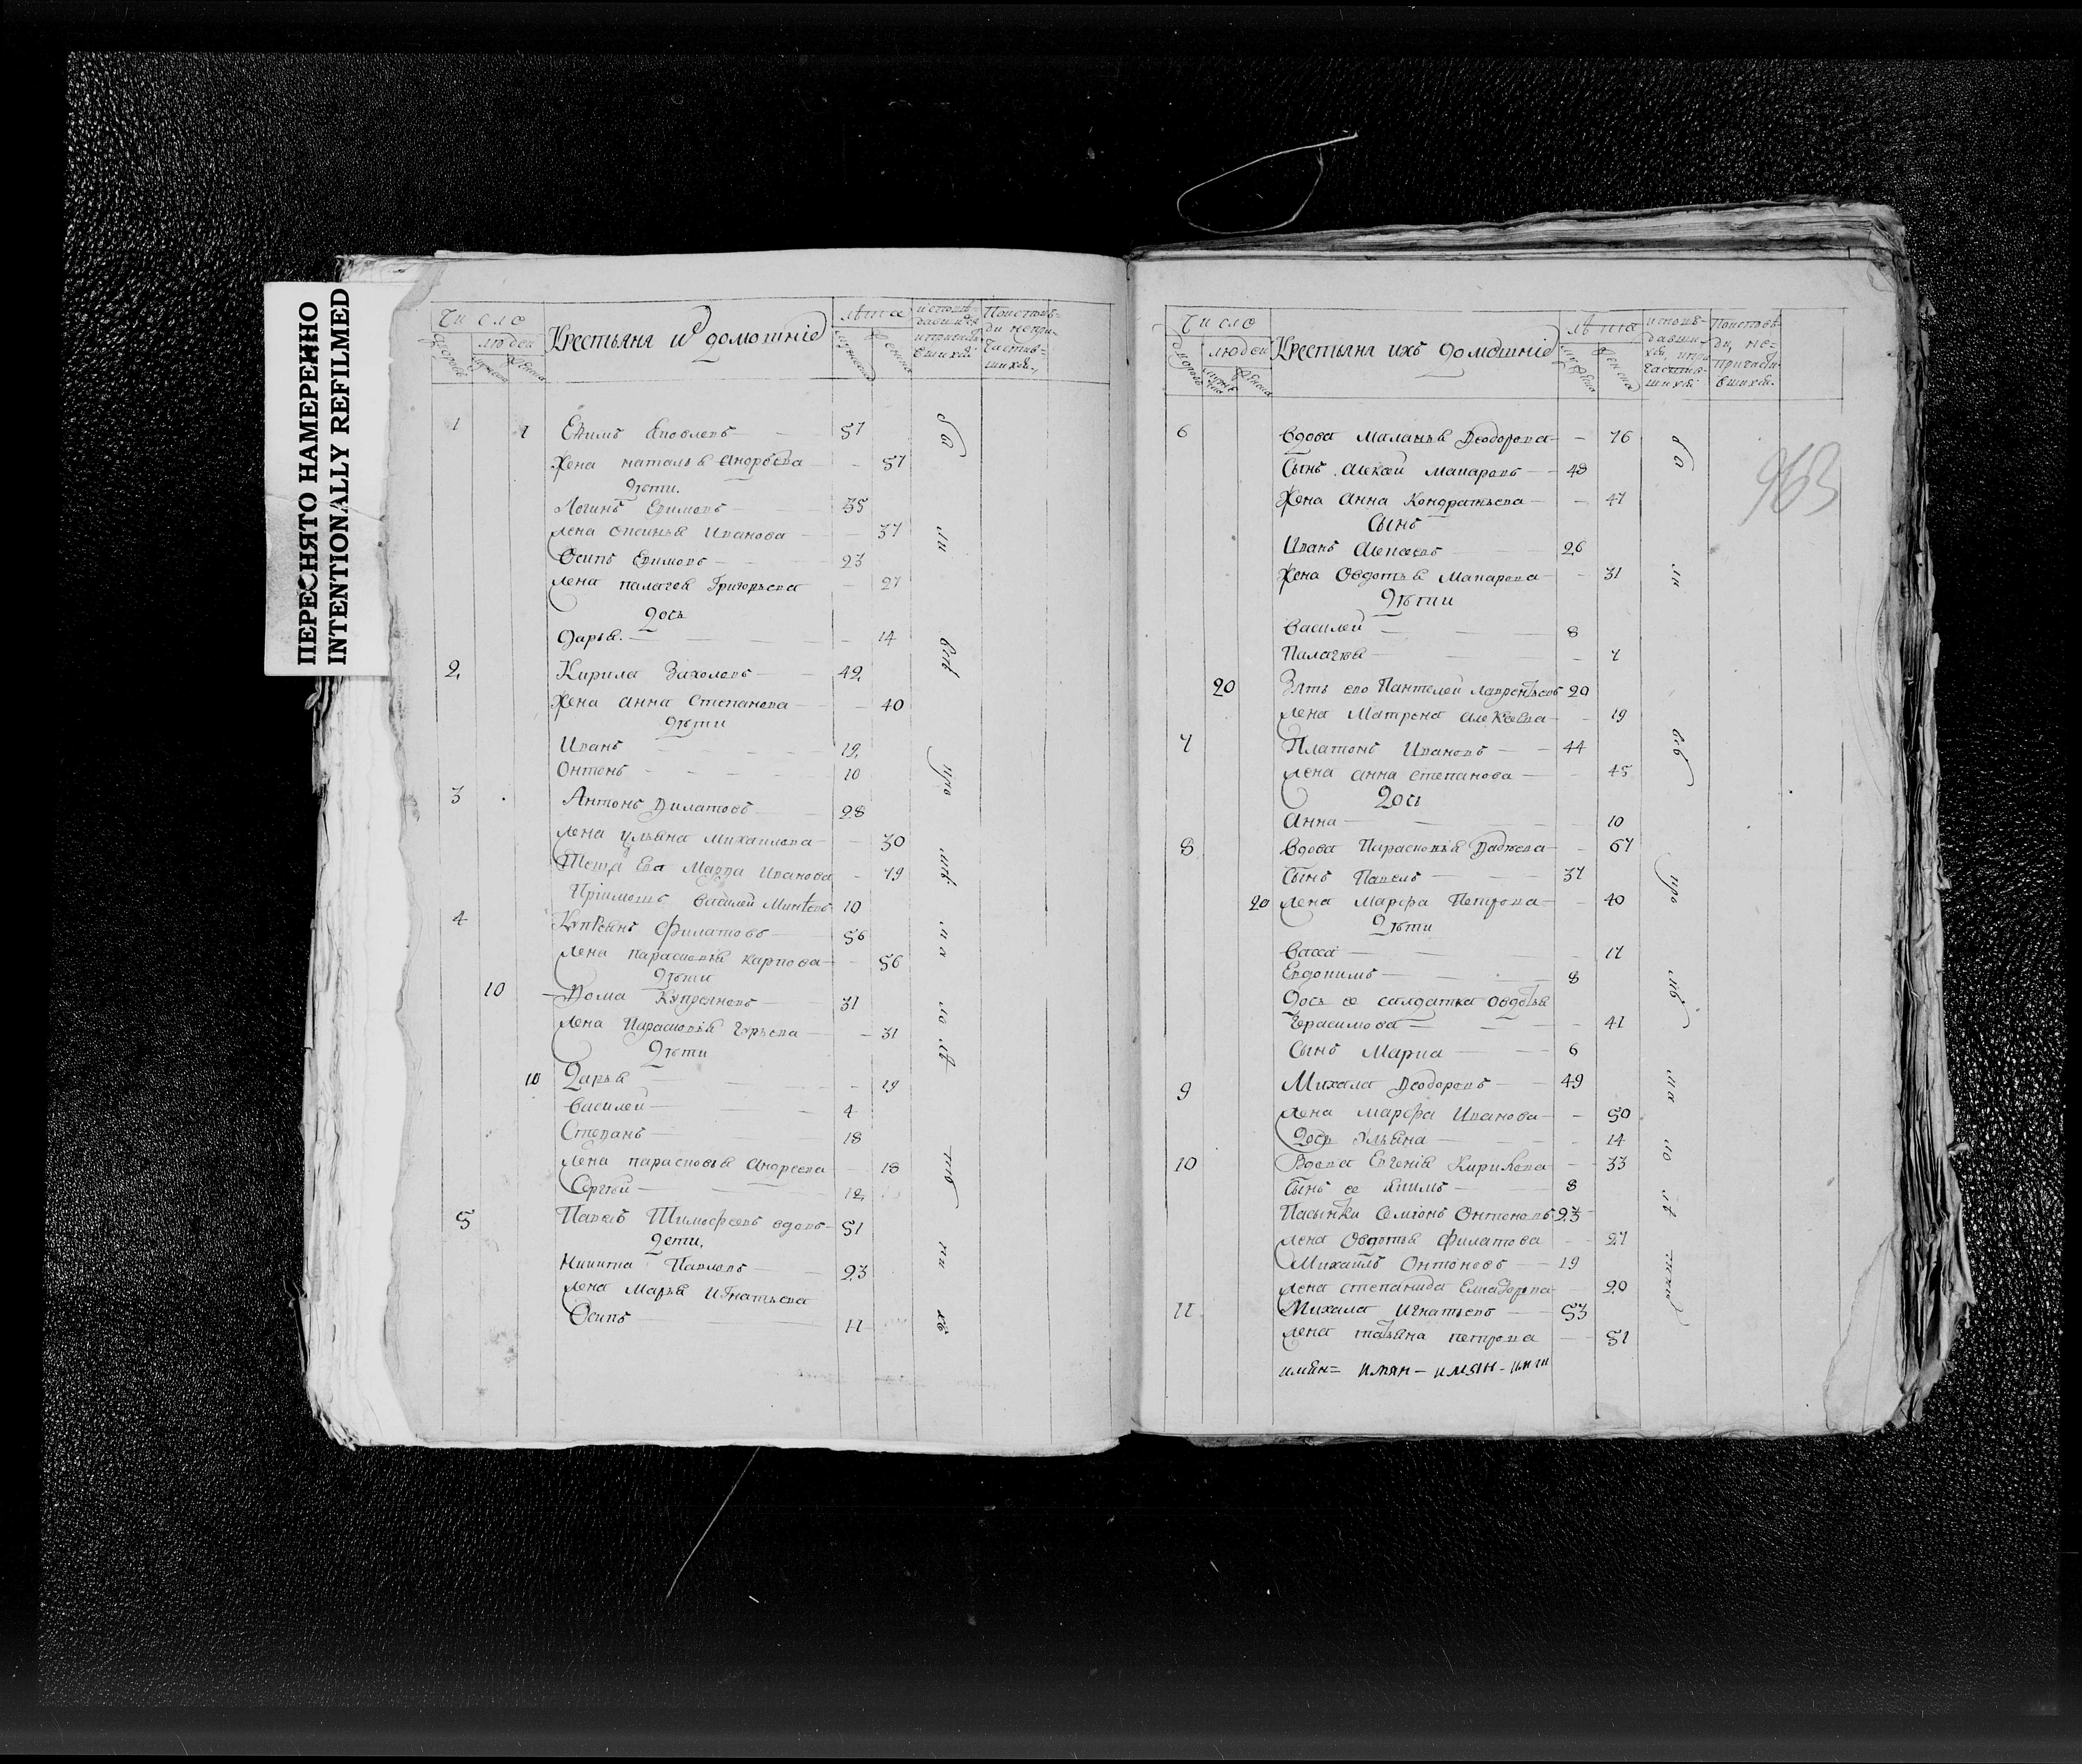 ПЕРЕСНЯТО НАМЕРЕННО
INTENTIONALLY REFILMED
Число
людей
Крестьяна и домошніе
лѣта
1 1 Ефимъ Яковлевъ 57
Жена наталья андрѣева 57
дѣти.
Логинъ Ефимовъ 35
жена Ивановa 37
Осипъ Ефимовъ 23
жена палагея Григорьева 27
дочь
дарья. 14
2 Кирила 42
Жена анна степанова 40
дѣти
Иванъ 12
Онтонъ 10
3 Антонъ Ѳилатовъ 28
жена ульяна михаилова 30
теща Ева Марѳа Иванова 79
Пріимошъ василей 10
4 Купреянъ филатовъ 56
жена парасковья карпова 56
дѣти
10 Ѳома Купреяновъ 31
жена Парасковья 31
дѣти
10 Дарья 19
василей 4
Степанъ 18
жена парасковья андреева 18
Сергѣй 12
5 Павелъ Тимофеевъ вдовъ 51
дети.
Никита Павловъ 23
жена Марья Игнатьева
Осипъ 11
Число
людей
Крестьяна ихъ домошніе
лѣта
963
6 вдова Маланья Ѳеодорова 76
Сынъ Алексей Макаровъ 48
Жена Анна Кондратьева 47
Сынъ
Иванъ Алексеевъ 26
Жена Овдотья Макарова 31
дѣти
василей 8
Палагѣя 7
20 Зять ево Пантелей лаврентьевъ 20
жена Матрена алексѣева 19
7 Платонъ Ивановъ 44
жена анна степанова 45
дочь
Анна 10
8 вдова Парасковья Ѳадѣева 67
Сынъ Павелъ 37
20 жена Марфа Петрова 40
дѣти
васса 17
Евдокимъ 8
дочь ее салдатка овдотья
Герасимова 41
Сынъ Марка 6
9 Михаила Ѳеодоровъ 49
жена марфа Иванова 50
дочь Ульяна 14
10 Вдова Евгенія Кирилова 33
Сынъ ее Якимъ 8
Пасынки Семіонъ Онтоновъ 23
жена Овдотья филатова 27
Михаилъ Онтоновъ 19
жена степанида 20
11 Михаила Игнатьевъ 53
жена татьяна петрова 51